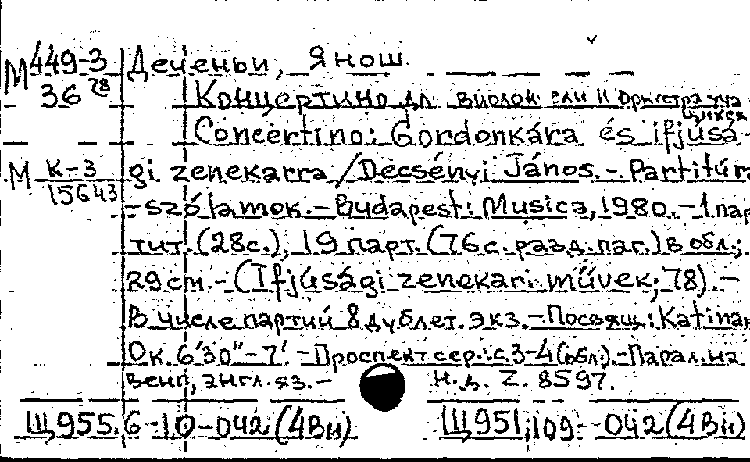 М 449-3 Деченьи, Янош.
36 78 Концертино дл виолон
Concertino: Gordonkára és ifjúsá-
М К-3 gi zenekarra / Decsényi János. - Partitúra
15643 - szólamok. - Budapest: Musica, 1980. - 1 пар
тит. (28с.), 19 парт. (76 с. разд. паг.) в обл.;
29 см. - (Ifjúsági zenekari művek; 78). -
В числе партий 8 дублет. экз. - Посвящ.: Katinak
Ок. 6'30" - 7'. - Проспект сер.: с. 3-4 (обл.). - Парал. на
венг., англ. яз. - Н. д. Z. 8597.
Щ955.6-10-042(4Вн) Щ951.109-042(4Вн)